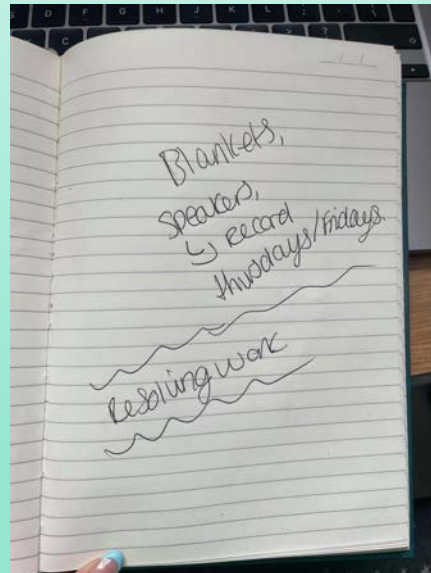 Blankets,
speakers,
↳ Record
thursdays/Fridays.
Resolving work